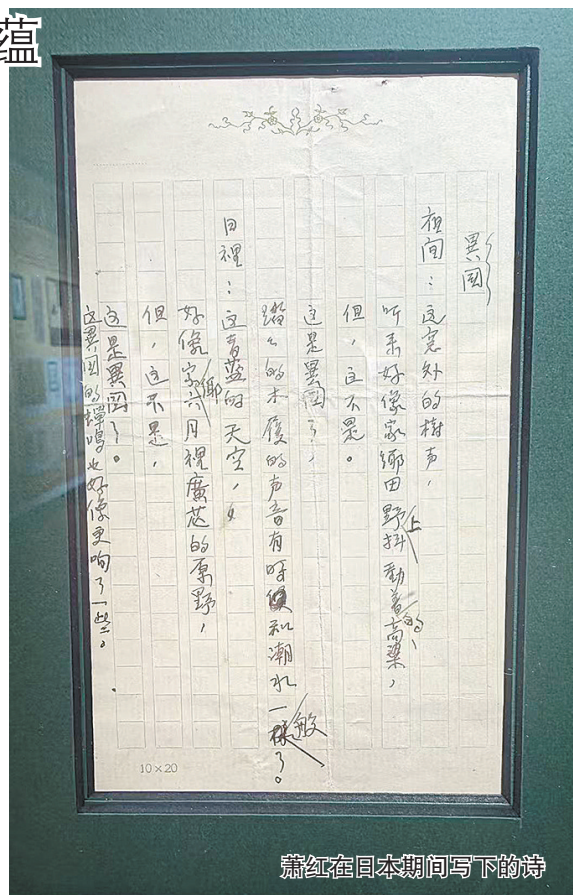 蕴
異國
夜间：这窓外的樹声，
听来好像家鄉田野上抖動着的高粱，
但，这不是。
这是異國了，
踏々的木屐的声音有时候和潮水一般了。
日裡：这青蓝的天空，
好像家鄉六月裡廣茫的原野，
但，这不是，
这是異國了。
这異國的蟬鳴也好像更响了一些。
10×20
萧红在日本期间写下的诗